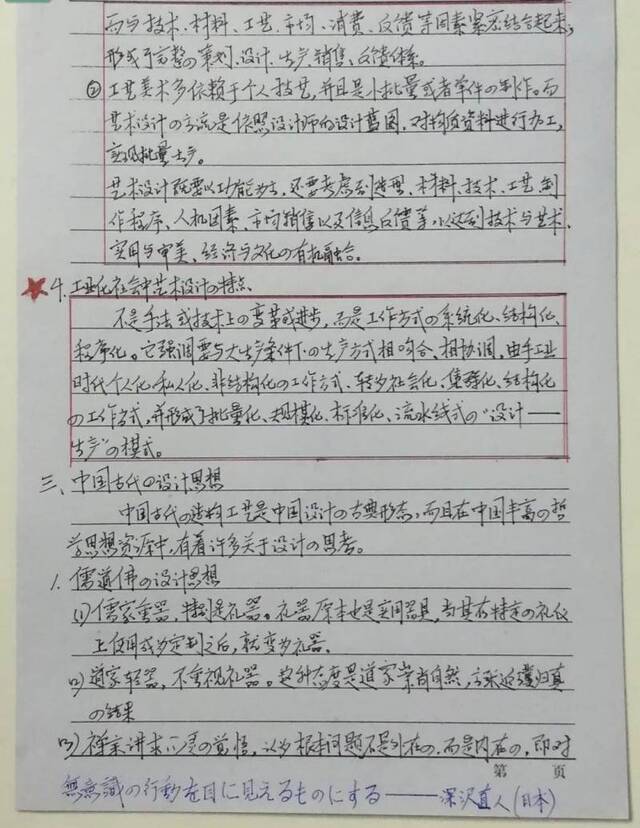 而与技术、材料、工艺、市场、消费、反馈等因素紧密结合起来,
形成了完整の策划、设计、生产、销售、反馈体系。
② 工艺美术多依赖于个人技艺,并且是小批量或者单件の制作。而
艺术设计の主流是依照设计师的设计蓝图,对物质资料进行加工,
实现批量生产。
艺术设计既要以功能为主,还要考虑到造型、材料、技术、工艺、制
作程序、人机因素、市场销售以及信息反馈等,以达到技术与艺术、
实用与审美、经济与文化の有机融合。
4. 工业化社会中艺术设计の特点、
不是手法或技术上の变革或进步,而是工作方式の系统化、结构化、
程序化。它强调要与大生产条件下の生产方式相吻合、相协调,由手工业
时代个人化、私人化、非结构化の工作方式、转为社会化、集群化、结构化
の工作方式,并形成了批量化、规模化、标准化、流水线式の“设计——
生产”の模式。
三、中国古代の设计思想
中国古代の造物工艺是中国设计の古典形态,而且在中国丰富の哲
学思想资源中,有着许多关于设计の思考。
1. 儒道佛の设计思想
(1) 儒家重器,特别是礼器。礼器原本也是实用器具,当其在特定の礼仪
上使用或为定制之后,就变为礼器、
(2) 道家轻器,不重视礼器。这种态度是道家崇尚自然,主张返璞归真
の结果
(3) 禅宗讲求心灵の觉悟,认为根本问题不是外在の,而是内在の,即对
第 页
無意識の行動を目に見えるものにする——深沢直人(日本)